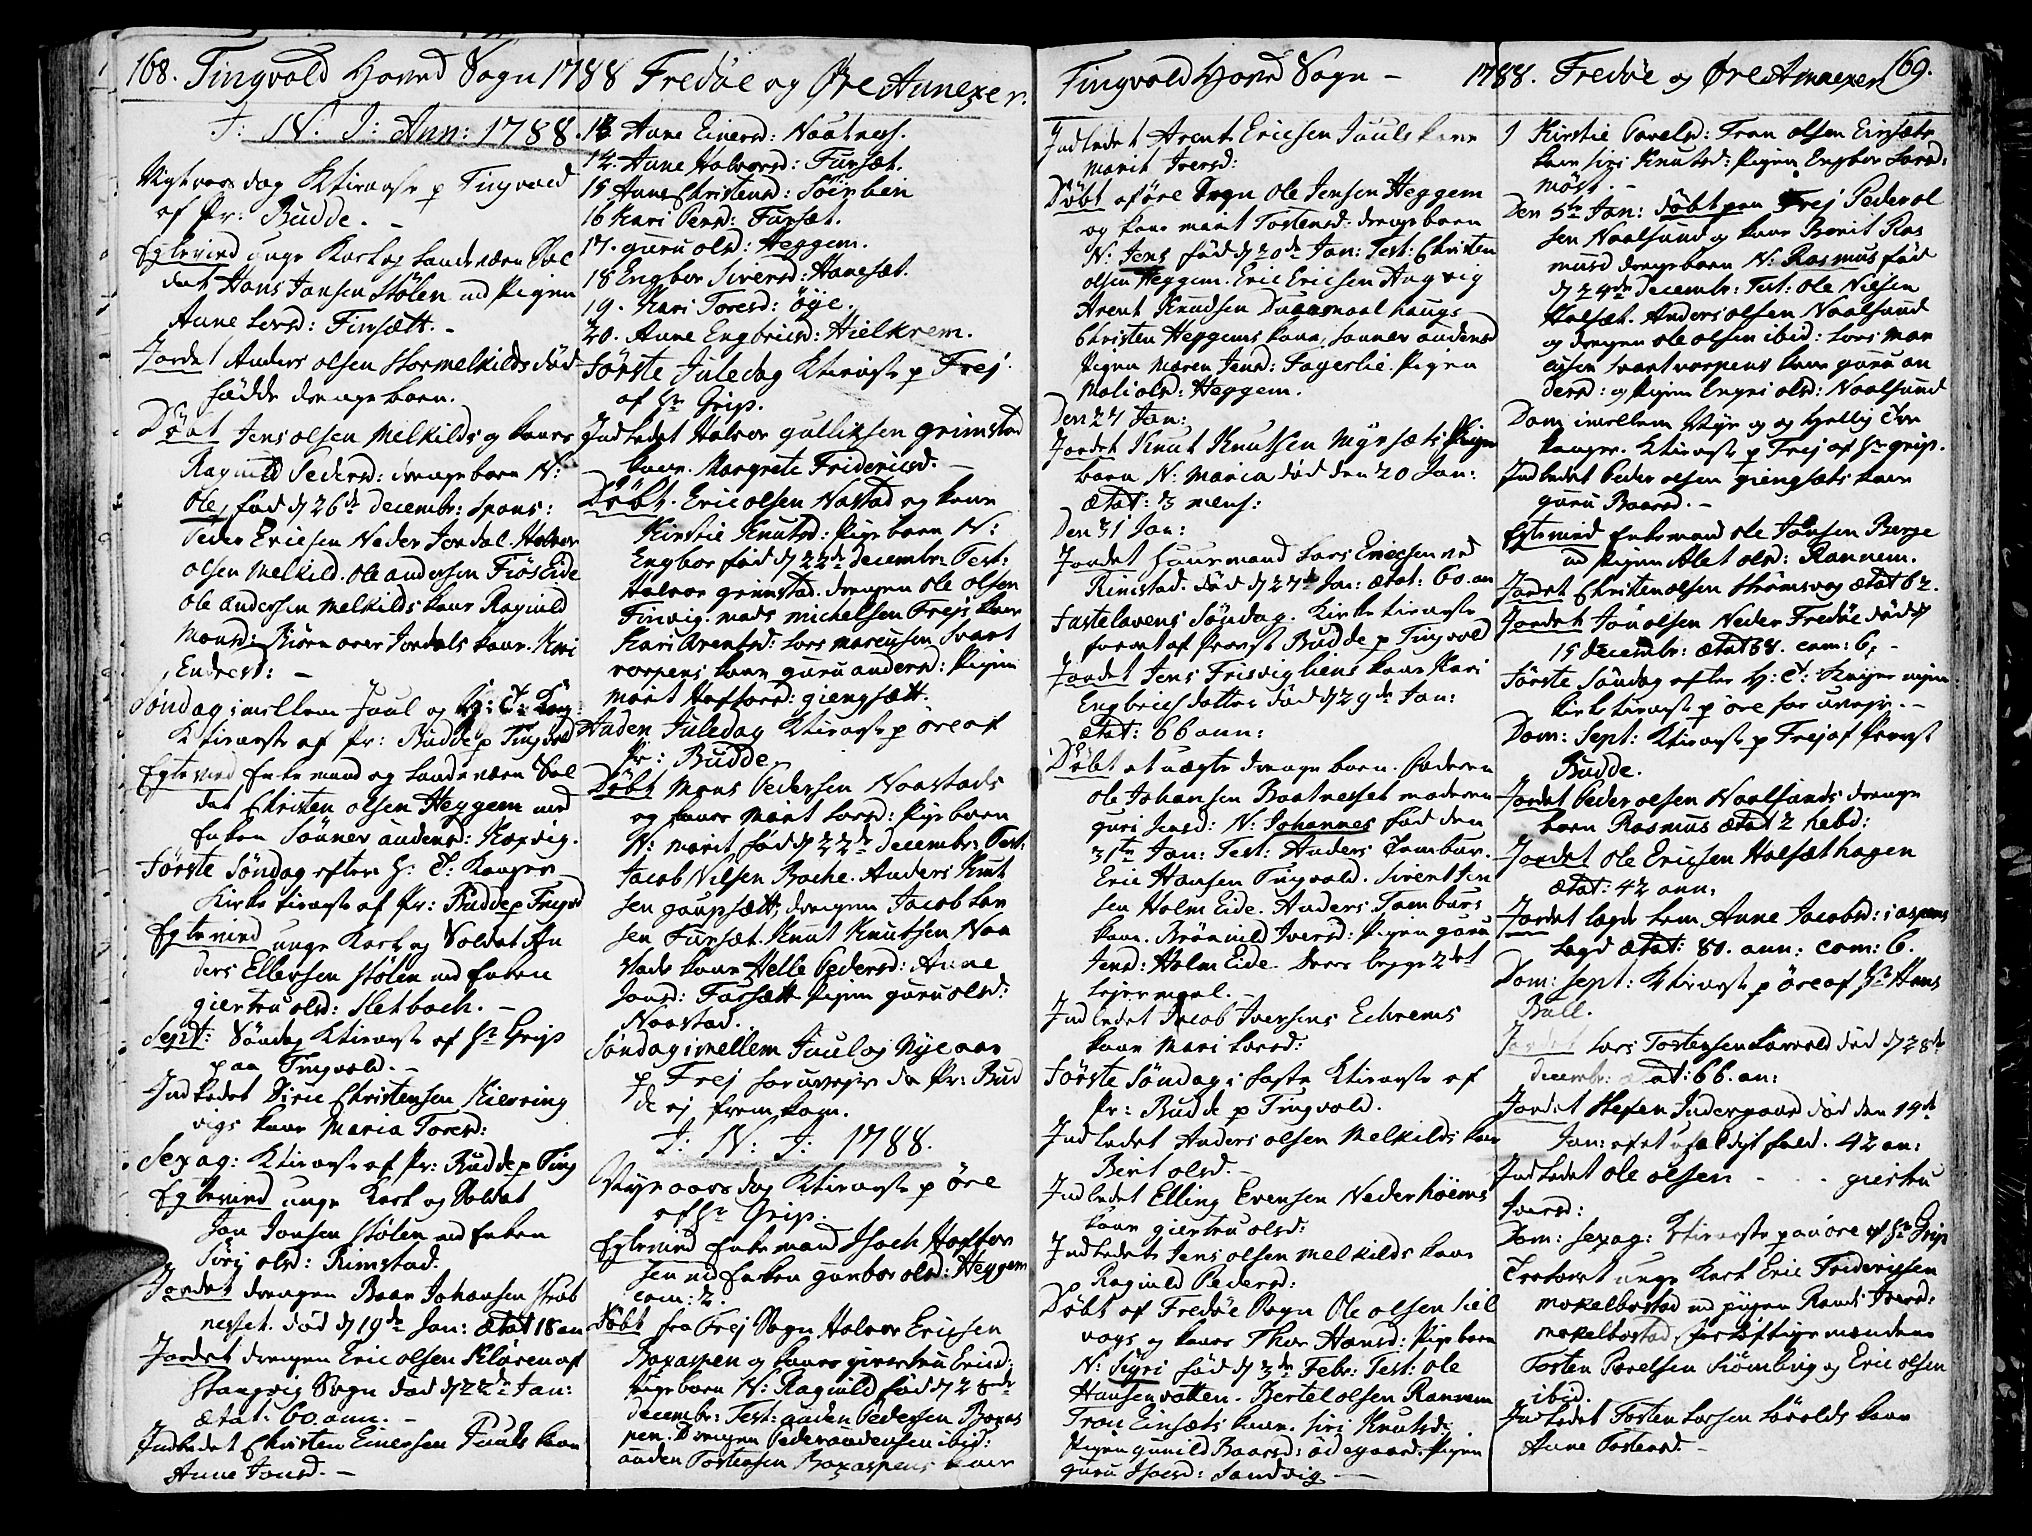 168. Tingvold Hoved Sogn 1788 Fredøe og Øre Annexer.
J: N. J: Ann: 1788.
Nytaarsdag Ktieneste p Tingvold
af Pr: Budde. -
Egtevied unge Karl og Landeværn Sol
dat Hans Jonsen Stölen med Pigen
Anne Lersd: Finsætt. -
Jordet Anders olsen Stormelkilds död
födde drenge barn.
Döbt Jens olsen Melkilds og kones
Ragnild Pedersd: drengebarn N:
Ole, föd d 26de decembr: Spons:
Peder Ericsen Neder Jordal. Halvor
olsen Melkild. ole andersen Fiös Eide
ole andersen Melkilds kone Ragnild
Monsd: Biörn over Jordals kone. Kari
Endresd: -
Söndag imellem Juul og H: 3: Kong:
Ktieneste af Pr: Budde p Tingvold
Egtevied Enkemand og Landeværn Sol
dat Christen olsen Heggem med
Enken Sönnev andersd: Korsvig.
Förste Söndag efter H: 3: Konger
Kirke tieneste af Pr: Budde p Tingvold
Egtevied unge Karl og Soldat An
ders Ellevsen Stölen med Enken
giertru olsd: Sletbach. -
Sept: Söndag Ktieneste af Hr Grip
paa Tingvold. -
Indledet Diric Christensen Kierring
vigs kone Maria Toresd:
Sexag: Ktieneste af Pr: Budde p Ting
Egtevied unge Karl og Soldat
Jon Jonsen Stölen med Enken
Siri olsd: Rimstad.
Jordet drengen Baar Johansen Strøb
nesset. död d 19de Jan: ætat 18 an
Jordet drengen Eric olsen Kløven af
Stangvig Sogn död d 22de Jan:
ætat: 60. ann. -
Indledet Christen Einersen Juuls kone
Anne Jonsd. -
13 Anne Einersd: Naatnes.
14. Anne Halvorsd: Fursæt.
15 Anne Christensd: Söirbein
16 Kari Persd: Fursæt.
17. guru olsd: Heggem.
18 Engbor Siversd: Hanesæt.
19. Kari Toresd: öye.
20. Anne Engbricsd: Hielkrem.
Förste Juledag Ktieneste p Frej
af Hr Grip.
Indledet Halvor gulliksen grimstad
kone. Margrete Fridericsd. -
Döbt. Eric olsen Nastad og kone
Kirstie Knutsd: Pigebarn N:
Engbor föd d 22de decembr: Test:
Halvor grimstad. drengen Ole olsen
Finvig. mads michelsen Frejs kone
Kari Arentsd: Lars Marensen Svart
vorpens kone guru andersd: Pigen
marit Haftorsd: giengsætt.
Anden Juledag Ktieneste p öre af
Pr: Budde
Döbt Mons Pedersen Naastads
og kones Marit Larsd: Pigebarn
N: marit föd d 22de decembr: Test:
Jacob Nilsen Bache. Anders Knut
sen gaupsætt, drengen Jacob Lar
sen Fursæt. Knut Knutsen Naa
stads kone Helle Pedersd: Anne
Jonsd: Fursætt Pigen guru olsd:
Naastad.
Söndag imellem Juul og Nyeaar
p Frej for uvejr da Pr: Bud
de ej frem kom.
J: N: J: 1788.
Nyeaarsdag Ktieneste p öre
af Hr Grip.
Egtevied Enkemand Isach Haftor
sen med Enken gunbor olsd: Heggem
com: 2.
Döbt fra Frej Sogn Halvor Ericsen
Boxaspen og kones giertru Ericsd:
Pigebarn N: Ragnild föd d 28de
decembr: Test: anden Pedersen Boxas
pen. Drengen Peder andensen ibid:
anden Tostensen Boxaspens kone
Tingvold Hoved Sogn - 1788. Fredøe og Øre Annexer 169.
Indledet Arent Ericsen Juuls kone
Marit Iversd:
Döbt af öre Sogn Ole Jensen Heggem
og kone marit Tostensd: drengebarn
N: Jens föd d 20de Jan: Test: Christen
olsen Heggem. Eric Ericsen Angvig
Arent Knudsen Duaasmaal haugs
Christen Heggems kone, Sönnev andersd
Pigen Maren Jensd: Fagerlie. Pigen
Mali olsd: Heggem.
Den 27 Jan:
Jordet Knut Knutsen Myrsæts Pige
barn N: Maria död den 20 Jan:
ætat: 3 mens:
Den 31 Jan:
Jordet Huusmand Lars Ericsen ved
Rimstad. död d 27de Jan: ætat: 60. an
Fastelavens Söndag. Kirke tieneste
forrett af Provst Budde p Tingvold
Jordet Jens Frisvighens kone Kari
Engbricsdatter död d 29de Jan:
ætat: 66 ann:
Döbt et uægte drenge barn. faderen
Ole Johansen Baatnesset moderen
guri Jensd: N: Johannes föd den
31te Jan: Test: Anders Tambur.
Eric Hansen Tingvold. Sivert Jen
sen Holm Eide. Anders Tamburs
kone. Brönild Iversd: Pigen guru
Jensd: Holm Eide. Deres begges 2det
Leiermaal. -
Indledet Jacob Iversens Echrems
kone Mari Larsd:
Förste Söndag i faste Ktieneste af
Pr: Budde p Tingvold.
Indledet Anders olsen Melkilds kone
Berit olsd. -
Indledet Elling Evensen Nederhöiems
kone giertru olsd:
Indledet Jens olsen melkilds kone
Ragnild Pedersd:
Döbt af Fredöe Sogn Ole olsen Siel
vogs og kones Thor Hansd: Pigebarn
N: Sigri föd d 3de Febr: Test: Ole
Hansen vatten. Bertel olsen Rannem
Tron Einsæts kone. Siri Knutsd:
Pigen gunild Baarsd: ödegaard. Pigen
guru Isacsd: Sandvig -
Kirstie Povelsd: Tron olsen Einsæts
kone Siri Knutsd: Pigen Engbor Larsd:
möst. -
Den 5te Jan: döbt paa Frej Peder ol
sen Naalsund og kone Berit Ras
musd drengebarn N: Rasmus föd
d 24de decembr: Test: Ole Nilsen
Halsæt. Anders olsen Naalsund
og drengen ole olsen ibid: Lars Mar
ensen Svartvorpens kone guru an
dersd: og Pigen Engri olsd: Naalsund
Dom: imellem Nyt og og Hellig Tre
konger. Ktieneste p Frej af Hr Grip.
Indledet Peder olsen giengsæts kone
guru Baarsd. -
Egtevied Enkemand Ole Jonsen Berge
med Pigen Alet olsd: Rannem.
Jordet Christen olsen Strömsvog ætat 62.
Jordet Jon olsen Neder Fredöe död d
15 decembr: ætat 68. com: 6. -
Förste Söndag efter H: 3: Konger ingen
kirke tieneste p öre for uvejr. -
Dom: Sept: Ktieneste p Frej af Provst
Budde.
Jordet Peder olsen Naalsunds drenge
barn Rasmus ætat 2 hebd:
Jordet Ole Ericsen Halsæthagen
ætat: 42 ann:
Jordet legds lem Anne Jacobsd: i aspens
legd ætat: 80. ann: com: 6.
Dom: sept: Ktieneste p öre af Hr Hans
Bull.
Jordet Lars Tostensen Lörvold död d 28de
decembr: ætat: 66. an:
Jordet Steffen Indergaard död den 19de
Jan: af et ufæ.. fald. 42 an:
Indledet Ole olsen - . . giertru
Iversd:
Dom: sexag: Ktieneste paa öre af Hr Grip
Trolovet unge Karl Eric Fridericsen
mækelbostad med pigen Randi Iversd:
mækelbostad forlöftigemændene
Tosten Povelsen Siömbing og Eric olsen
ibid.
Indledet Tosten Larsen Lörvolds kone
Anne Tostensd. -